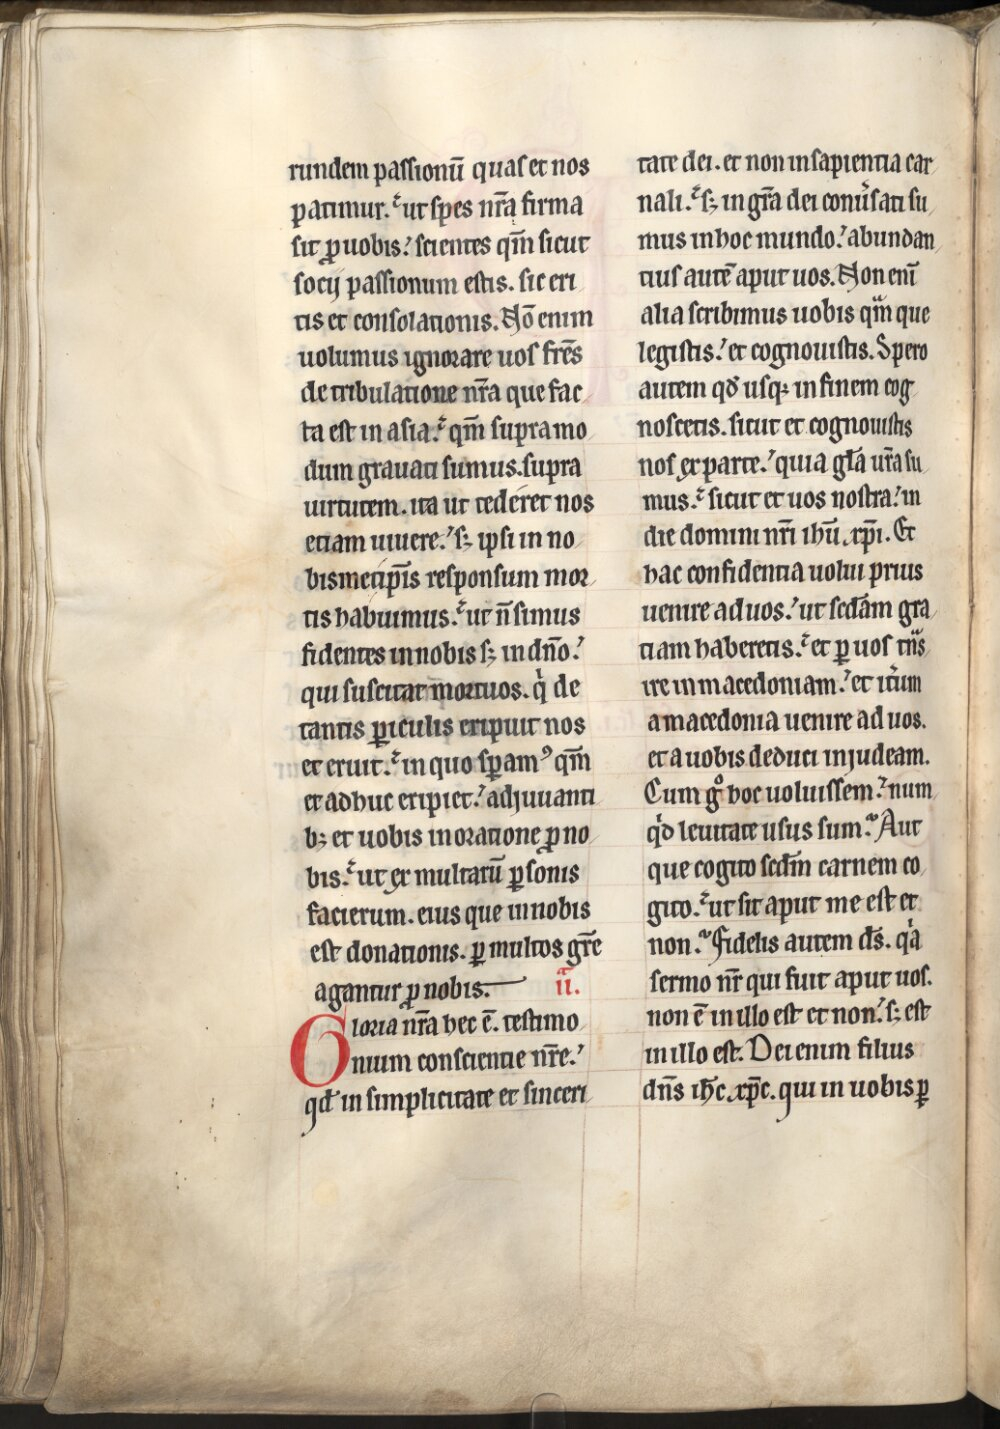 rundem passionū quas et nos
patimur. ut spes nr̄a firma
sit ꝑ uobis. scientes qm̄ sicut
socij passionum estis. sic eri
tis et consolationis. Nō enim
uolumus ignorare uos fr̄es
de tribulatione nr̄a que fac
ta est in asia. qm̄ supra mo
dum grauati sumus. supra
uirtutem. ita ut tederet nos
etiam uiuere. sꝫ ipsi in no
bismetip̄is responsum mor
tis habuimus. ut n̄ simus
fidentes in nobis sꝫ in dn̄o.
qui suscitat mortuos. qͥ de
tantis ꝑiculis eripuit nos
et eruit. in quo sꝑamꝰ qm̄
et adhuc eripiet. adjuuanti
bꝫ et uobis in oratione ꝓ no
bis. ut ex multarū ꝑsonis
facierum. eius que in nobis
est donationis. ꝑ multos gr̄e
agantur ꝓ nobis. ii.
Gloria nr̄a hec ē. testimo
nium conscientie nr̄e.
qd̓ in simplicitate et sinceri
tate dei. et non in sapientia car
nali. sꝫ in gr̄a dei conu̓sati su
mus in hoc mundo. abundan
tius autē aput uos. Non enī
alia scribimus uobis qm̄ que
legistis. et cognouistis. Spero
autem qd̓ usqꝫ in finem cog
noscetis. sicut et cognouistis
nos ex parte. quia gl̄a ur̄a su
mus. sicut et uos nostra. in
die domini nr̄i ihū xp̄i. Et
hac confidentia uolui prius
uenire ad uos. ut scd̄am gra
tiam haberetis. et ꝑ uos tn̄s
ire in macedoniam. et it̓um
a macedonia uenire ad uos.
et a uobis deduci in judeam.
Cum gͦ hoc uoluissem. num
qͥd leuitate usus sum. Aut
que cogito scd̄m carnem co
gito. ut sit aput me est et
non. Fidelis autem ds̄. qͥa
sermo nr̄ qui fuit aput uos.
non ē in illo est et non. sꝫ est
in illo est. Dei enim filius
dn̄s ih̄c xp̄c. qui in uobis ꝑ